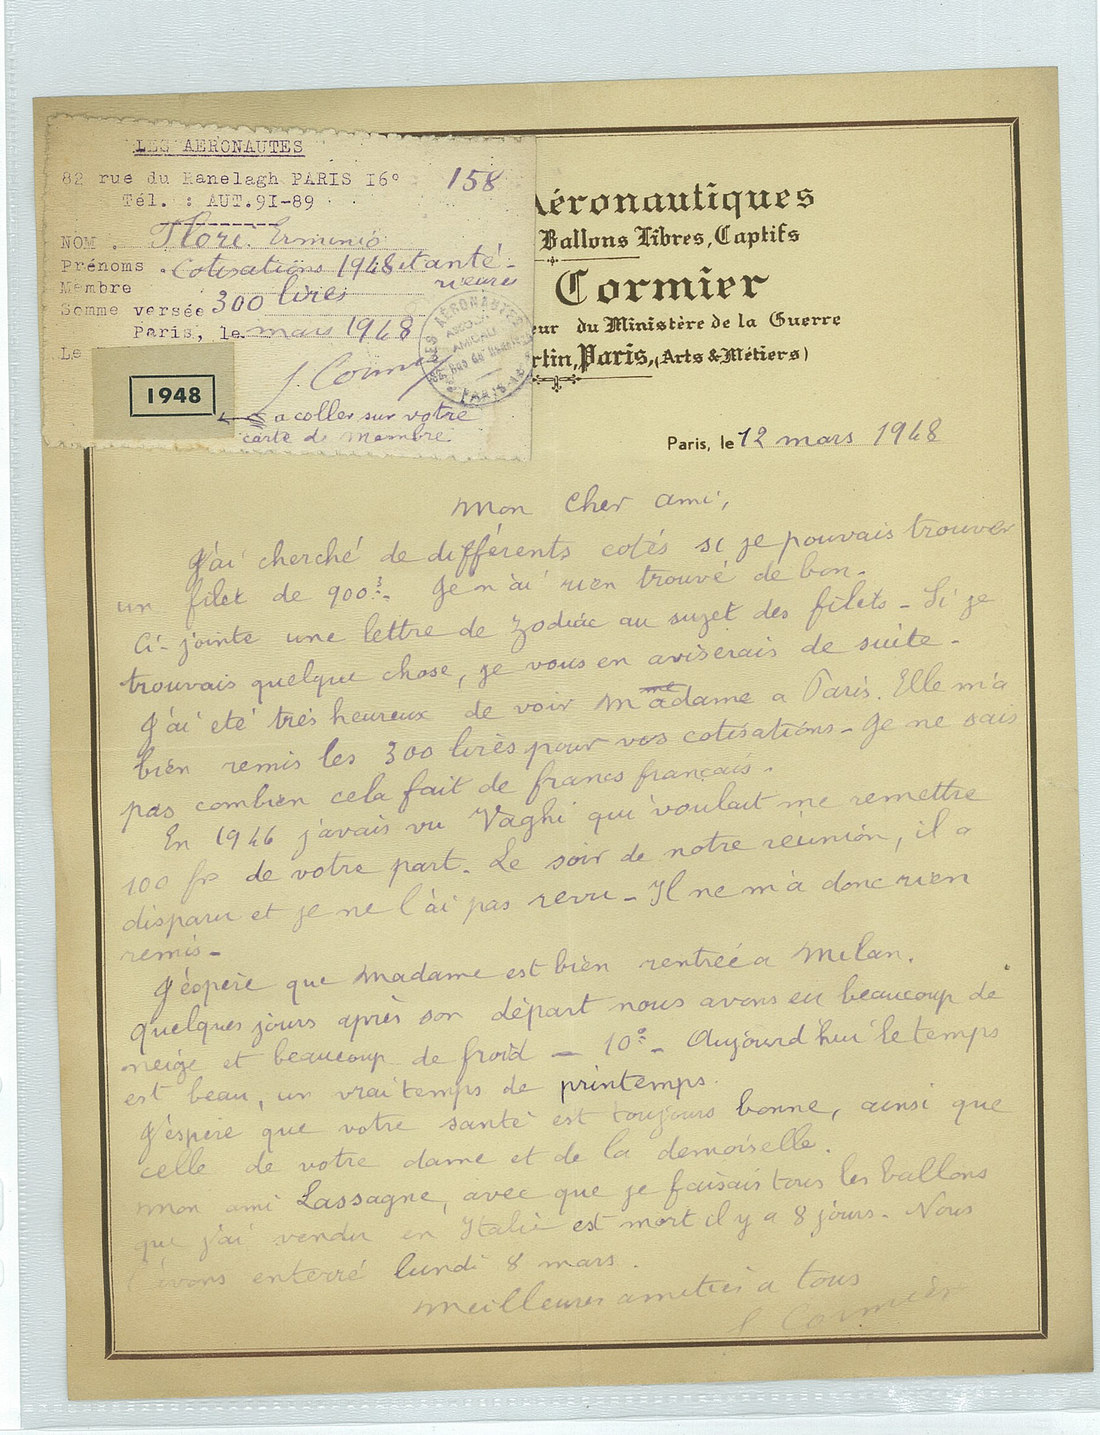 LES AERONAUTES
82 rue du Ranelagh PARIS 16°
158
Tél. : AUT.91-89
NOM . Flori Erminio
Prénoms . Cotisations 1948 et anté-
Membre rieures
Somme versée 300 lires
Paris, le mars 1948
Le
J. Cormier
1948
a coller sur votre
carte de Membre
LES AÉRONAUTES
PARIS
Aéronautiques
Ballons Libres, Captifs
Cormier
eur du Ministère de la Guerre
rtin, Paris, (Arts & Métiers)
Paris, le 12 mars 1948
Mon Cher ami,
J'ai cherché de différents cotés si je pouvais trouver
un filet de 900 3. Je n'ai rien trouvé de bon.
Ci-jointe une lettre de Zodiac au sujet des filets - Si je
trouvais quelque chose, je vous en aviserais de suite -
J'ai été très heureux de voir madame a Paris. Elle m'a
bien remis les 300 lires pour vos cotisations - Je ne sais
pas combien cela fait de francs français.
En 1946 j'avais vu Vaghi qui voulait me remettre
100 frs de votre part. Le soir de notre réunion, il a
disparu et je ne l'ai pas revu - Il ne m'a donc rien
remis -
J'éspère que Madame est bien rentrée a Milan.
quelques jours après son départ nous avons eu beaucoup de
neige et beaucoup de froid — 10° - Aujourd'hui le temps
est beau, un vrai temps de printemps.
J'éspère que votre santé est toujours bonne, ainsi que
celle de votre dame et de la demoiselle.
Mon ami Lassagne, avec que je faisais tous les ballons
que j'ai vendu en Italie est mort il y a 8 jours. Nous
l'avons enterré lundi 8 mars.
Meilleures amitiés a tous
Cormier